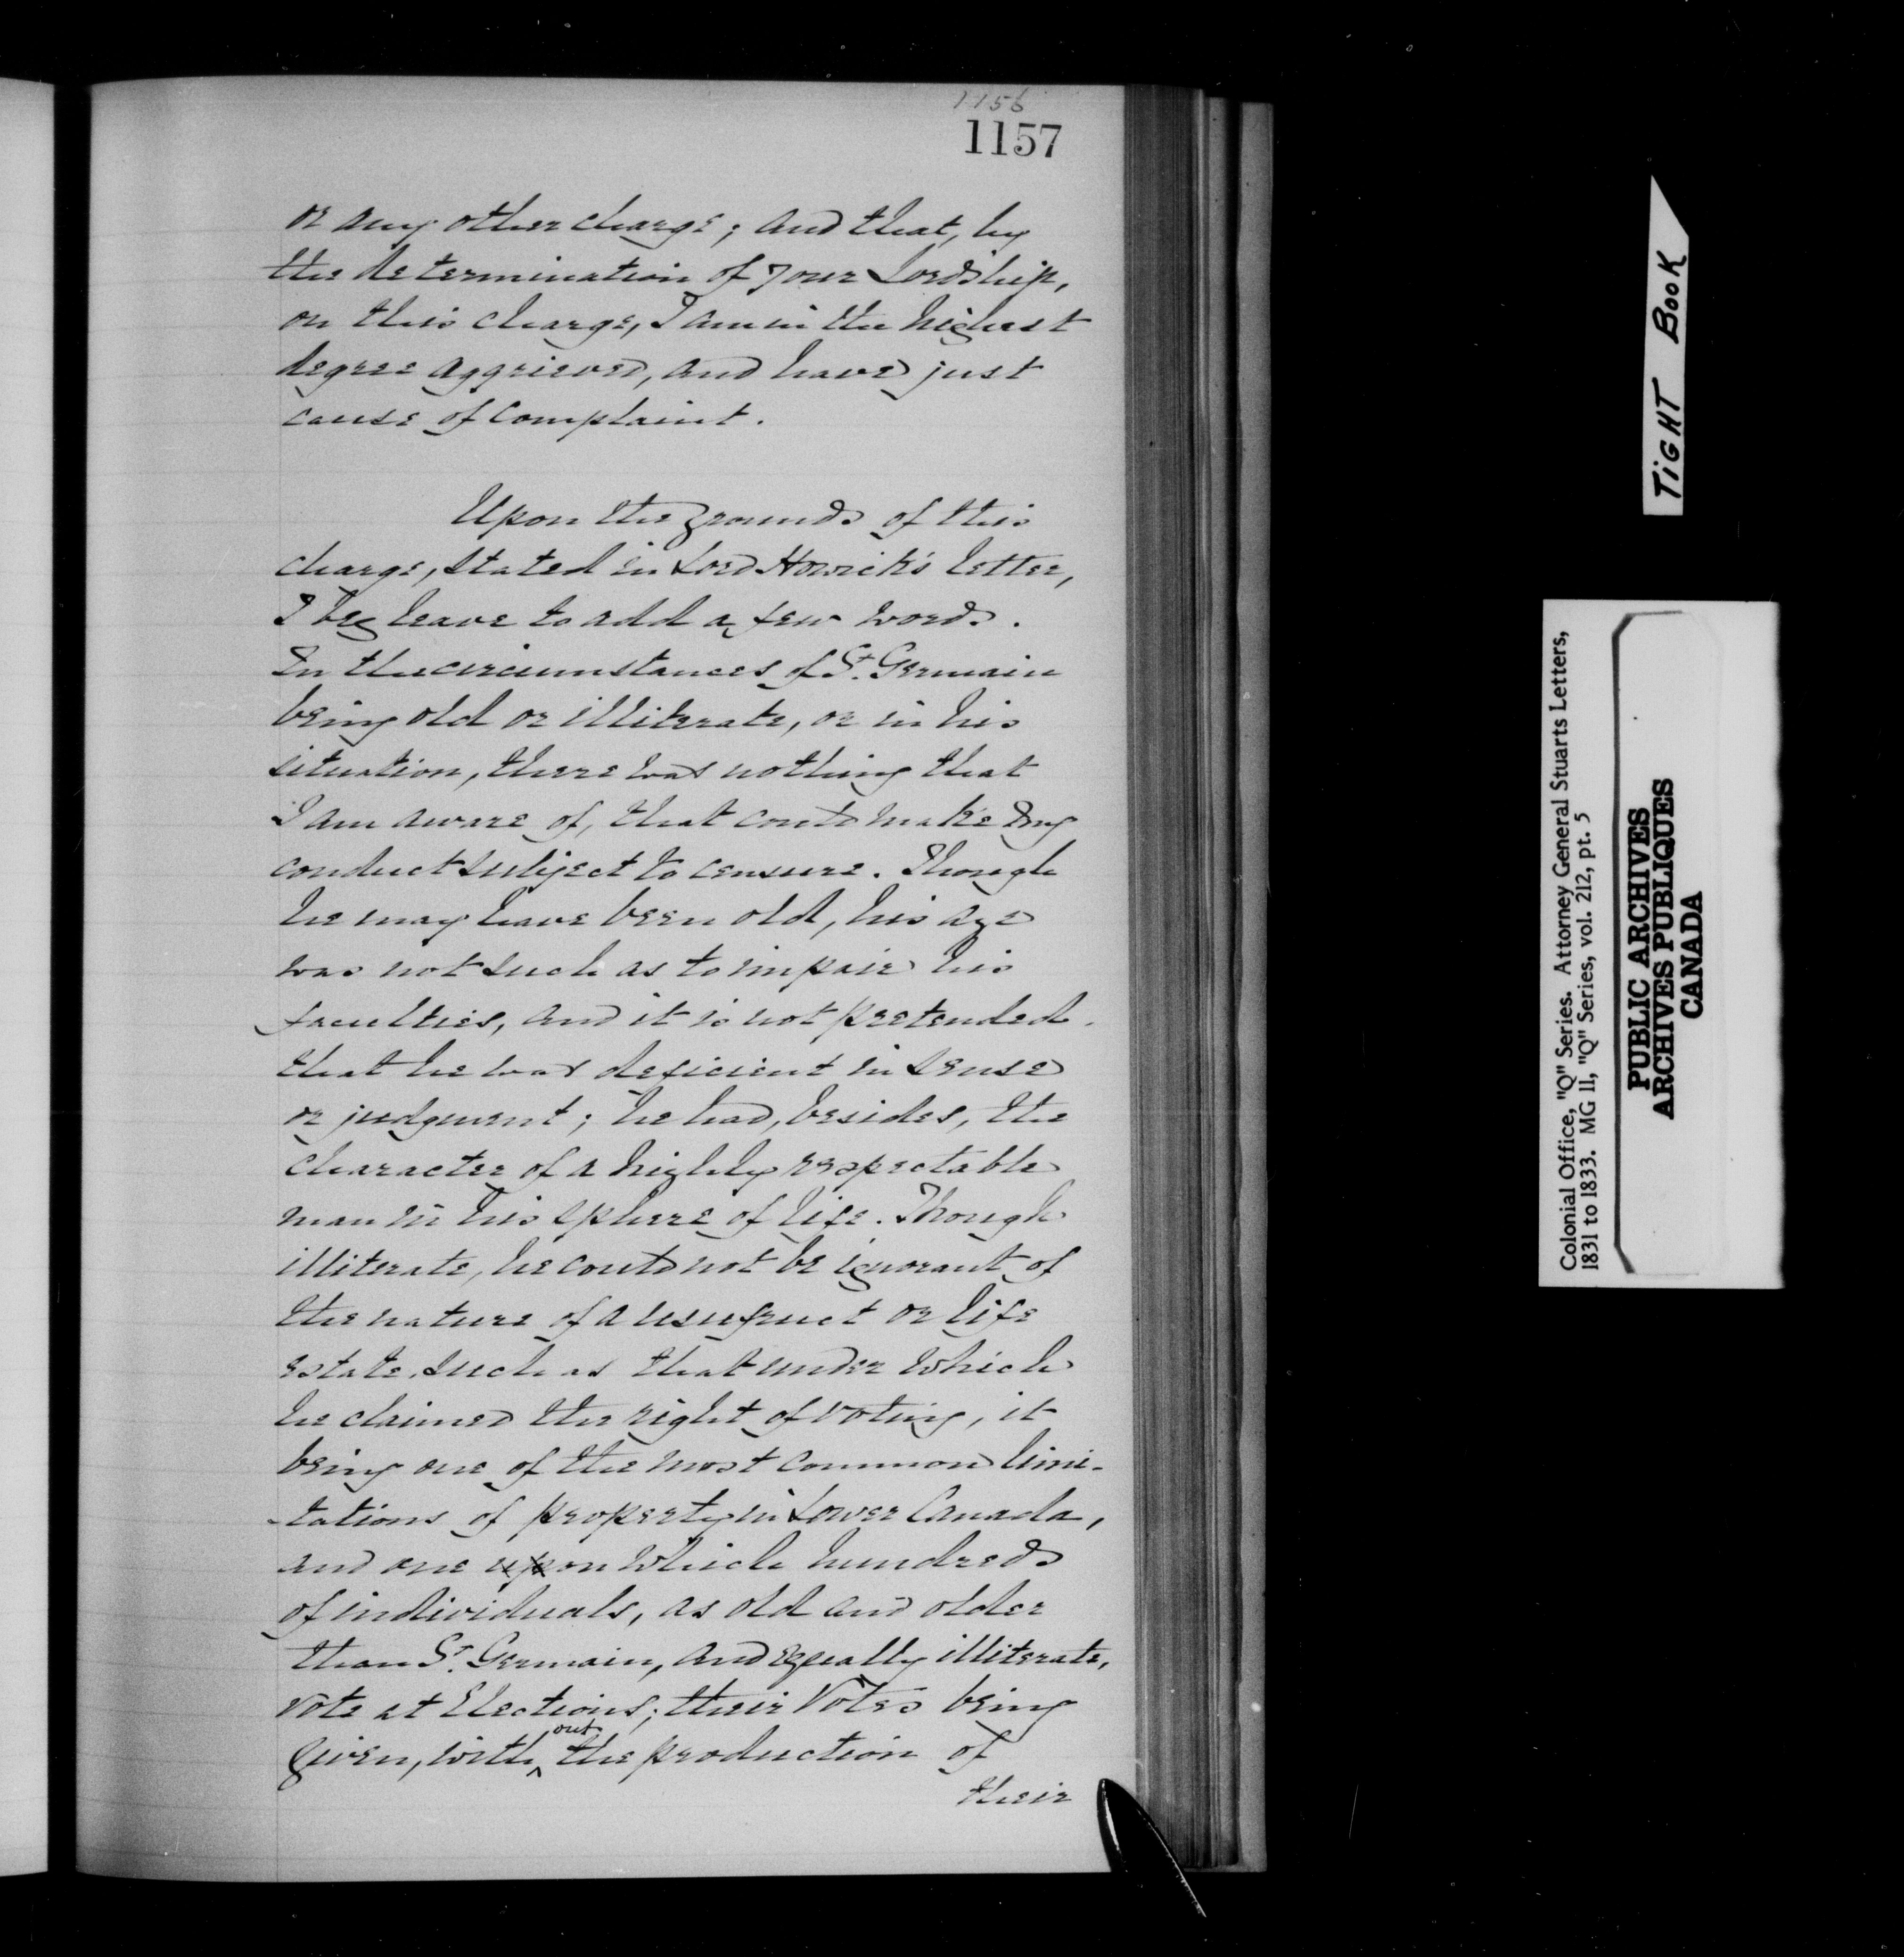 1156
1157
or any other charge; and that, by
the determination of your Lordship,
on this charge, I am in the highest
degree aggrieved, and have just
cause of complaint.
Upon the grounds of this
charge, stated in Lord Howick's letter,
I beg leave to add a few words.
In the circumstances of St. Germain
being old or illiterate, or in his
situation, there was nothing that
I am aware of, that could make my
conduct subject to censure. Though
he may have been old, his age
was not such as to impair his
faculties, and it is not pretended
that he was deficient in sense
or judgment; he had, besides, the
character of a highly respectable
man in his sphere of life. Though
illiterate, he could not be ignorant of
the nature of a usufruct or life
estate, such as that under which
he claimed the right of voting, it
being one of the most common limi-
-tations of property in Lower Canada,
and one upon which hundreds
of individuals, as old and older
than St. Germain, and equally illiterate,
vote at Elections; their Votes being
given, without the production of
their
TIGHT BOOK
Colonial Office, "Q" Series. Attorney General Stuarts Letters,
1831 to 1833. MG 11, "Q" Series, vol. 212, pt. 5
PUBLIC ARCHIVES
ARCHIVES PUBLIQUES
CANADA